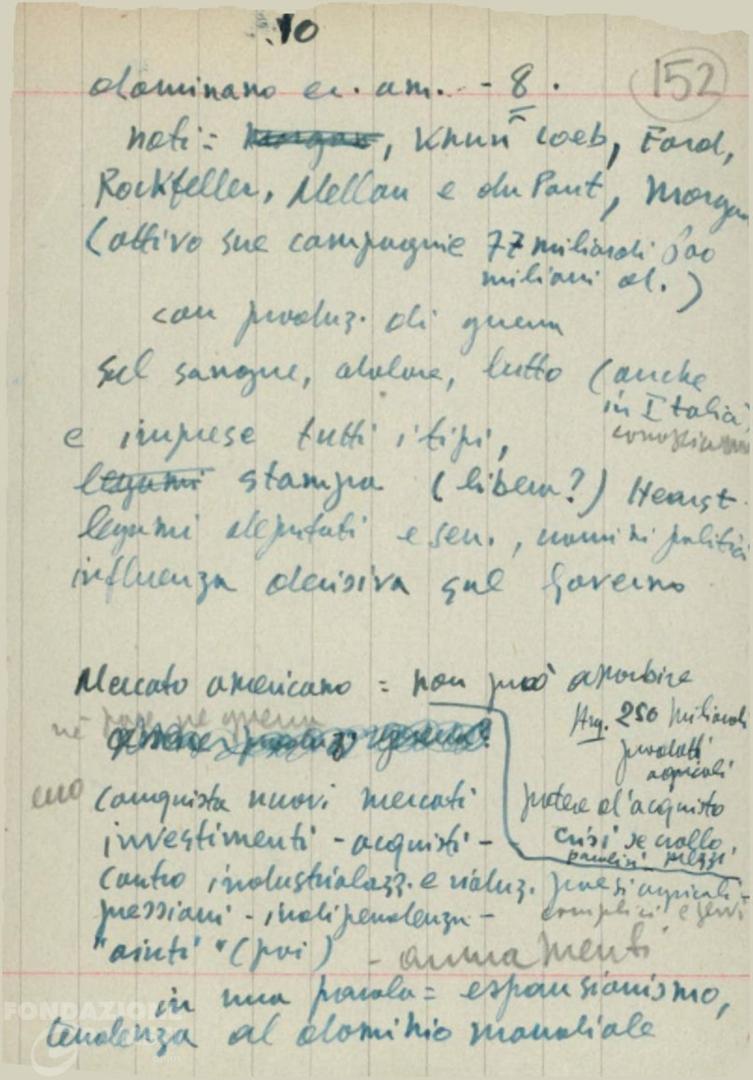 10
152
dominano ec. am. - 8.
noti: Morgan, Khun Loeb, Ford,
Rockfeller, Mellon e du Pont, Morgan
(attivo sue compagnie 77 miliardi 500
milioni dol.)
con produz. di guerra
sul sangue, dolore, lutto (anche
in Italia,
conosciamo
e imprese tutti i tipi,
legami stampa (libera?) Hearst
legami deputati e sen., uomini politici
influenza decisiva sul Governo
Mercato americano = non può assorbire
né pace né guerra
Arg. 250 miliardi
prodotti
agricoli
potere d'acquisto
crisi se crollo
prezzi
conquista nuovi mercati
investimenti - acquisti -
contro industrializz. e rialzz. paesi agricoli -
pressioni - indipendenza - complici e servi
"aiuti" (poi) - armamenti
in una parola = espansionismo,
tendenza al dominio mondiale
FONDAZIONE